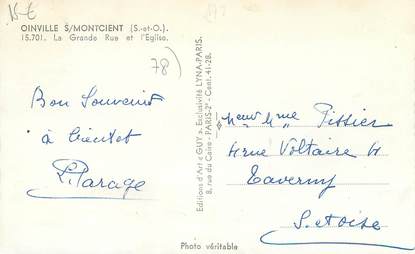 15 €
OINVILLE S/MONTCIENT (S.-et-O.)
15.701. La Grande Rue et l'Eglise.
78)
Bon Souvenir
à bientôt
P. Parage
Editions d'Art « GUY ». Exclusivité LYNA-PARIS.
8, rue du Caire - PARIS-2e - Cent. 41-28.
Mme Tissier
4 rue Voltaire 4
Taverny
S. et Oise
Photo véritable